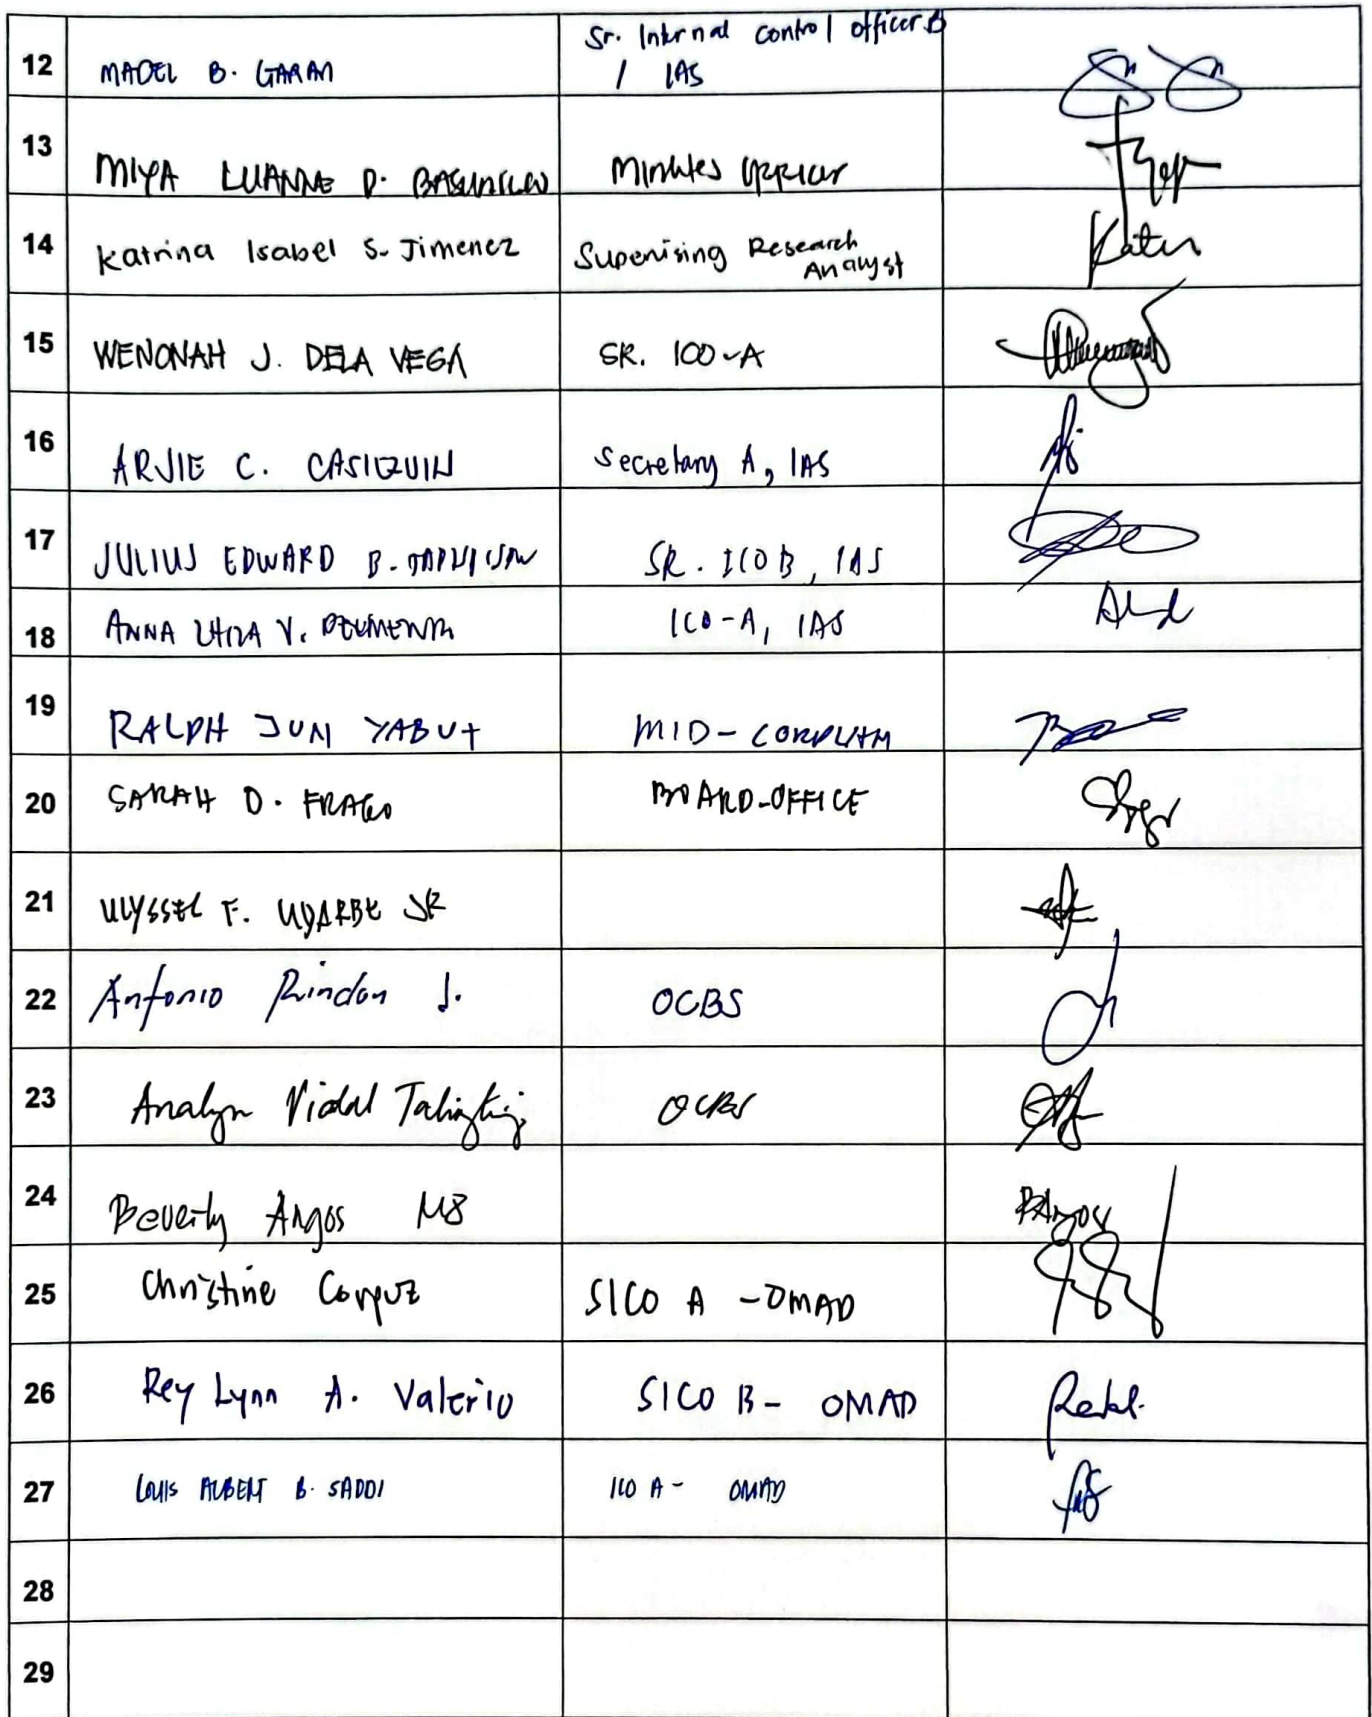 12 MADEL B. GARAN Sr. Internal control officer B
/ IAS
13 MIYA LUANNE D. Minutes Officer
14 Katrina Isabel S. Jimenez Supervising Research
Analyst
15 WENONAH J. DELA VEGA SR. ICO-A
16 ARJIE C. CASIQUIN Secretary A, IAS
17 JULIUS EDWARD B. SR. ICO B, IAS
18 ANNA V. ICO-A, IAS
19 RALPH JUN YABUT MID - CORPLAN
20 SARAH D. FRAGO BOARD-OFFICE
21 ULYSSES F. UDARBE JR
22 Antonio Rindon J. OCBS
23 Analyn Vidal OCBS
24 Beverly Argos
25 Christine Corpuz SICO A - OMAD
26 Rey Lynn A. Valerio SICO B - OMAD
27 LOUIS ALBERT B. SADDI ICO A - OMAD
28
29